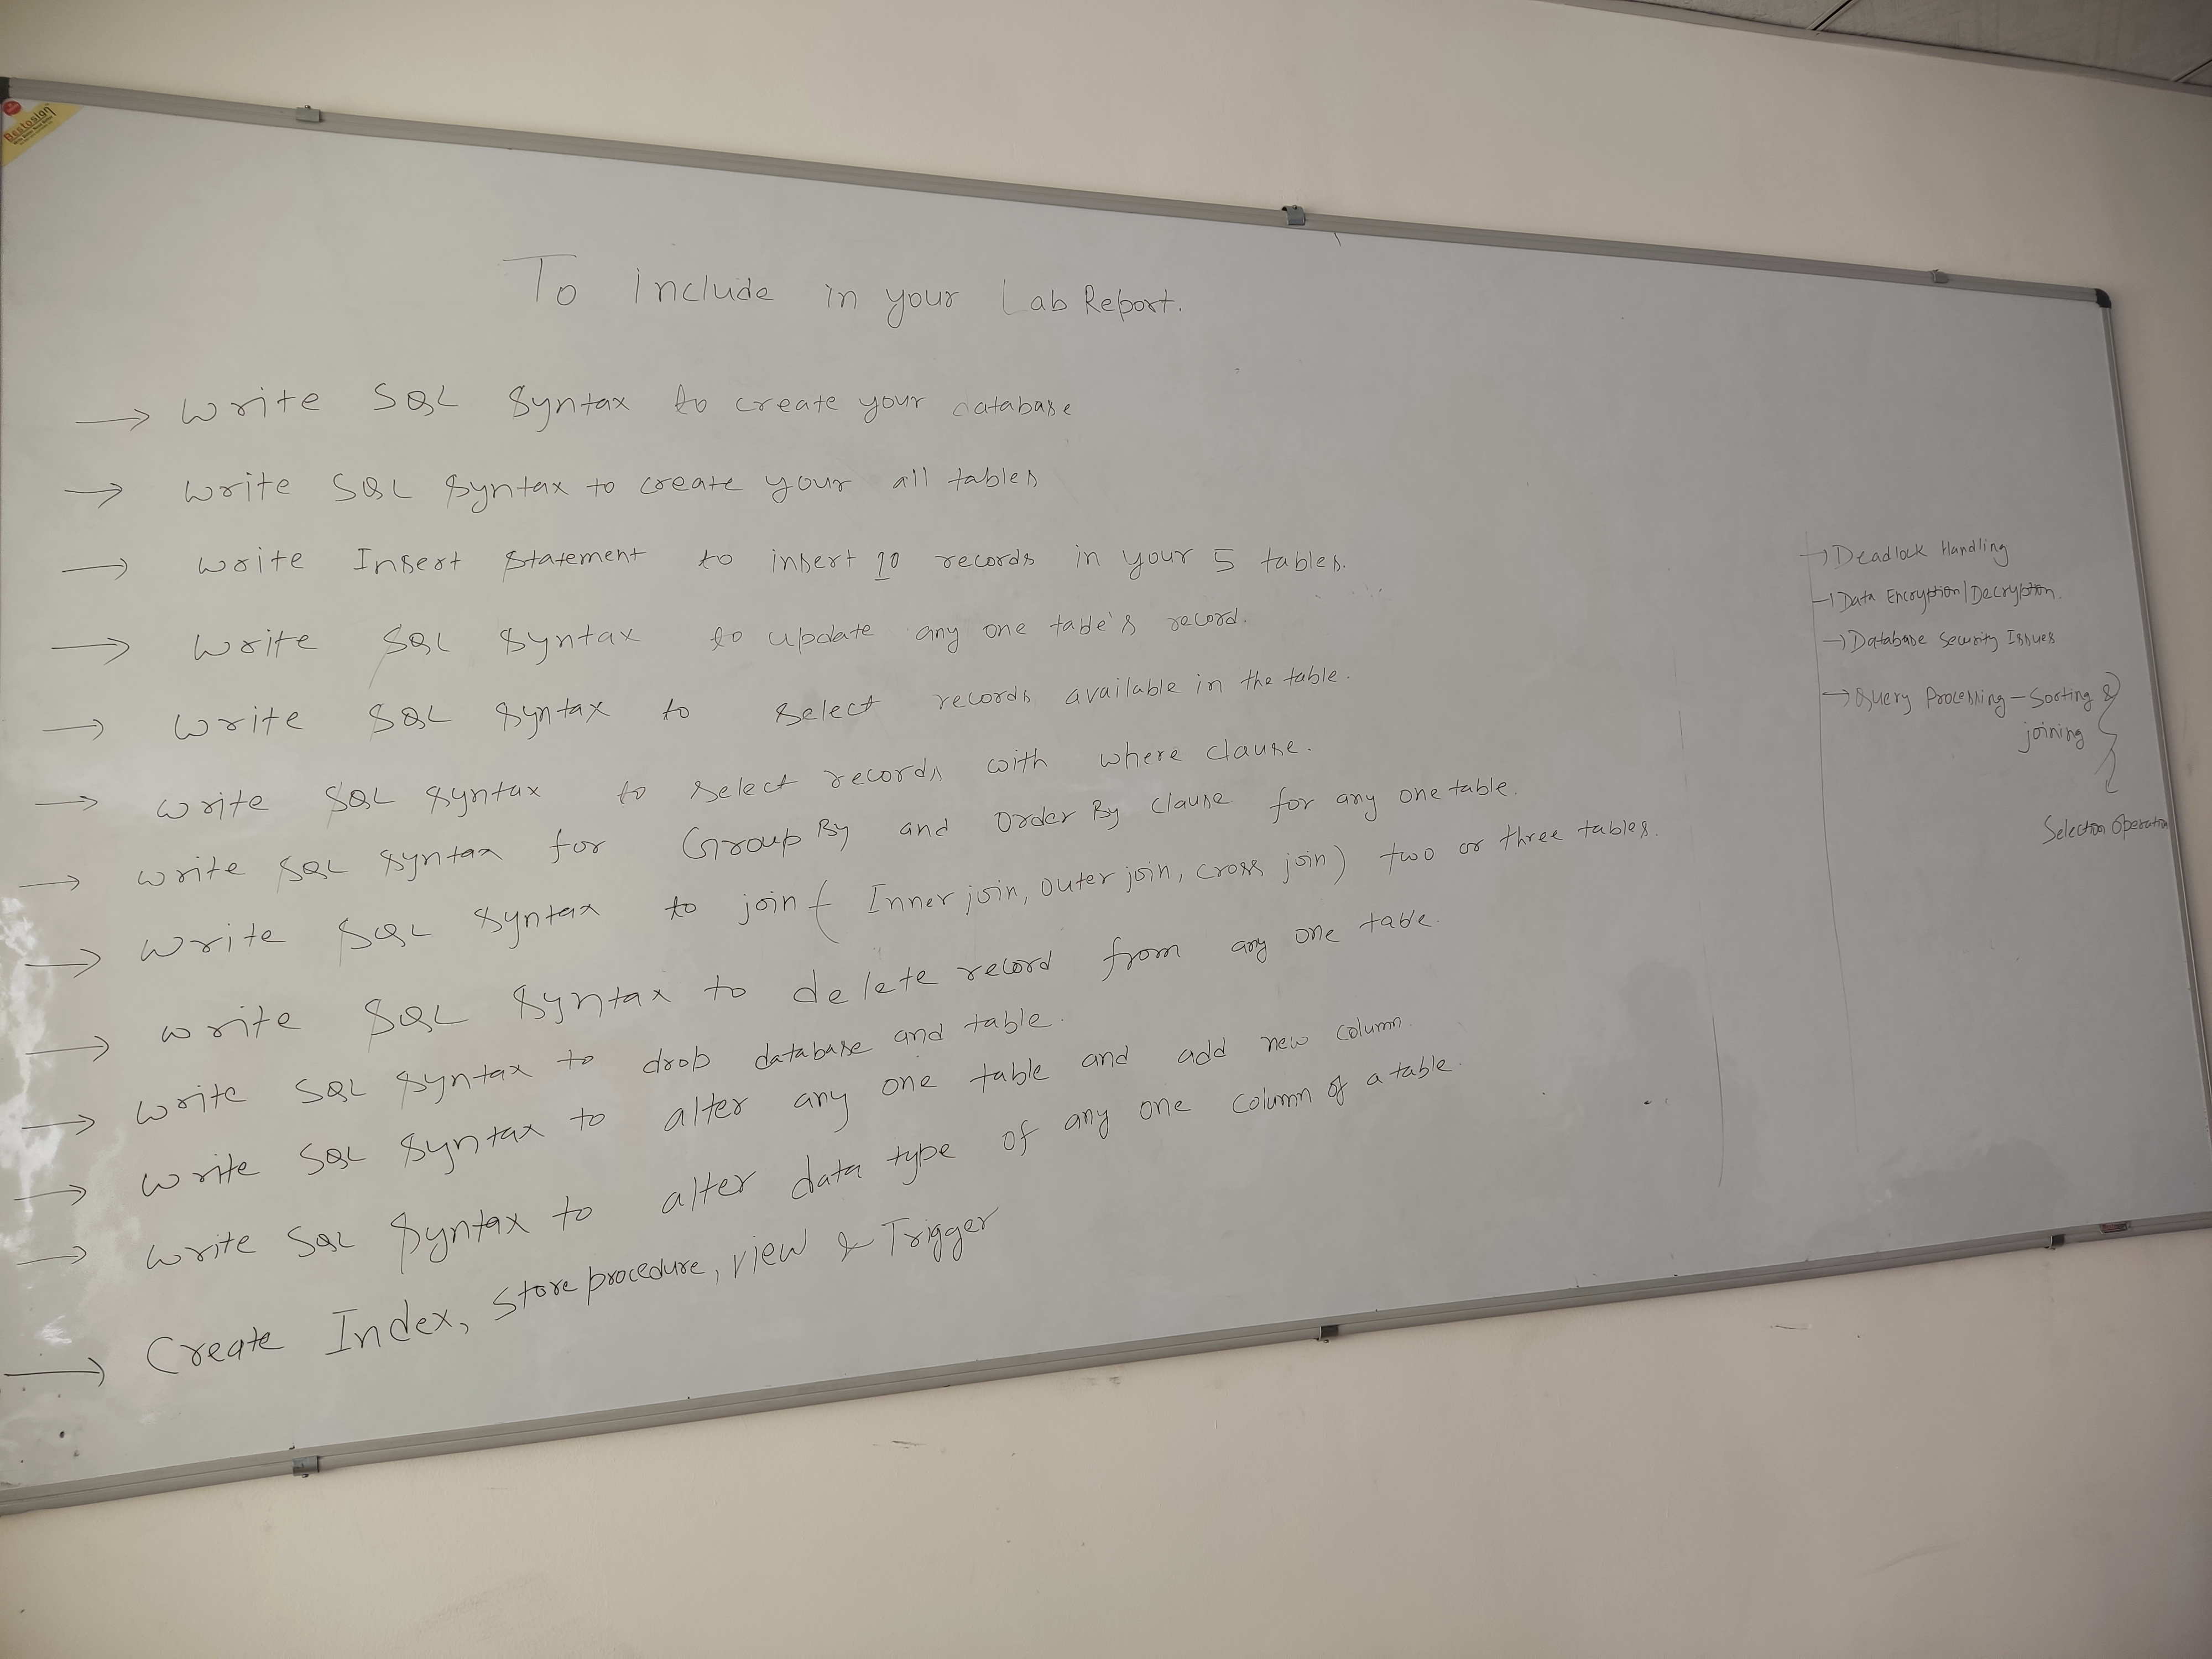 Bestosign
To include in your Lab Report.
→ Write SQL Syntax to create your database
→ Write SQL Syntax to create your all tables
→ Write Insert Statement to insert 10 records in your 5 tables.
→ Write SQL Syntax to update any one table's record.
→ Write SQL Syntax to select records available in the table.
→ Write SQL Syntax to select records with where clause.
→ Write SQL Syntax for Group By and Order By clause for any one table.
→ Write SQL Syntax to join (Inner join, outer join, cross join) two or three tables.
→ Write SQL Syntax to delete record from any one table.
→ Write SQL Syntax to drop database and table.
→ Write SQL Syntax to alter any one table and add new column.
→ Write SQL Syntax to alter data type of any one column of a table.
→ Create Index, Store procedure, view & Trigger
→ Deadlock Handling
→ Data Encryption/Decryption.
→ Database Security Issues
→ Query Processing - Sorting &
joining
Selection Operation